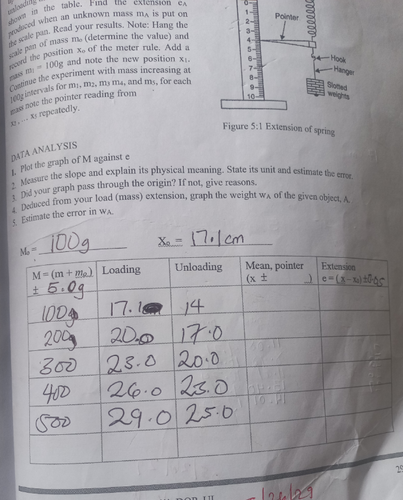 unloading
shown in the table. Find the extension eA
produced when an unknown mass mA is put on
the scale pan. Read your results. Note: Hang the
scale pan of mass m₀ (determine the value) and
record the position x₀ of the meter rule. Add a
mass m₁ = 100g and note the new position x₁.
Continue the experiment with mass increasing at
100g intervals for m₁, m₂, m₃ m₄, and m₅, for each
mass note the pointer reading from
x₅ repeatedly.
0
1
2
3
4
5
6
7
8
9
10
Pointer
Hook
Hanger
Slotted
weights
Figure 5:1 Extension of spring
DATA ANALYSIS
1. Plot the graph of M against e
2. Measure the slope and explain its physical meaning. State its unit and estimate the error.
3. Did your graph pass through the origin? If not, give reasons.
4. Deduced from your load (mass) extension, graph the weight wA of the given object, A.
5. Estimate the error in wA.
M₀ = 100g X₀ = 17.1cm
M = (m + m₀) Loading Unloading Mean, pointer Extension
± 5.0g (x ± ) e = (x – x₀)
100g 17.1 14
200g 20.0 17.0
300 23.0 20.0
400 26.0 23.0
500 29.0 25.0